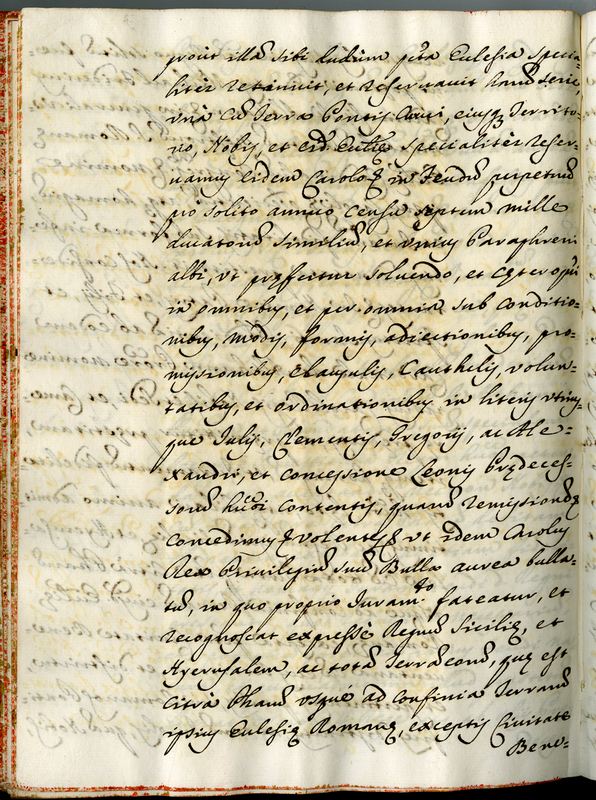 prout illā sibi dudum pta Ecclesia specia-
liter retinuit, et reseruauit harū serie,
vnà cū Terra Pontis Curui, eiusq; Territo-
rio, Nobis, et eidē Ecclię specialiter reser-
uamus eidem Carolo & in Feudū perpetuū
pro solito annuo censu septem mille
ducatorū similiū, et vnius Paraphreni
albi, vt pręfertur soluendo, et cętero qui
in omnibus, et per omnia sub conditio-
nibus, modis, formis, adiectionibus, pro-
missionibus, Clausulis, Cauthelis, volun-
tatibus, et ordinationibus in literis vtrius-
que Iulij, Clementis, Gregorij, ac Ale-
xandri, et concessione Leonis Prędeces-
sorū hmōi contentis, quarū remissionē &
concedimus & volentes & vt idem Carolus
Rex Priuilegiū suū Bulla aurea bulla-
tū, in quo proprio Iuram.to fateatur, et
recognoscat expressè Regnū Sicilię, et
Hyerusalem, ac totā Terrā eorū, quę est
citrà Pharū vsque ad confinia Terrarū
ipsius Ecclesię Romanę, exceptis Ciuitate
Bene-